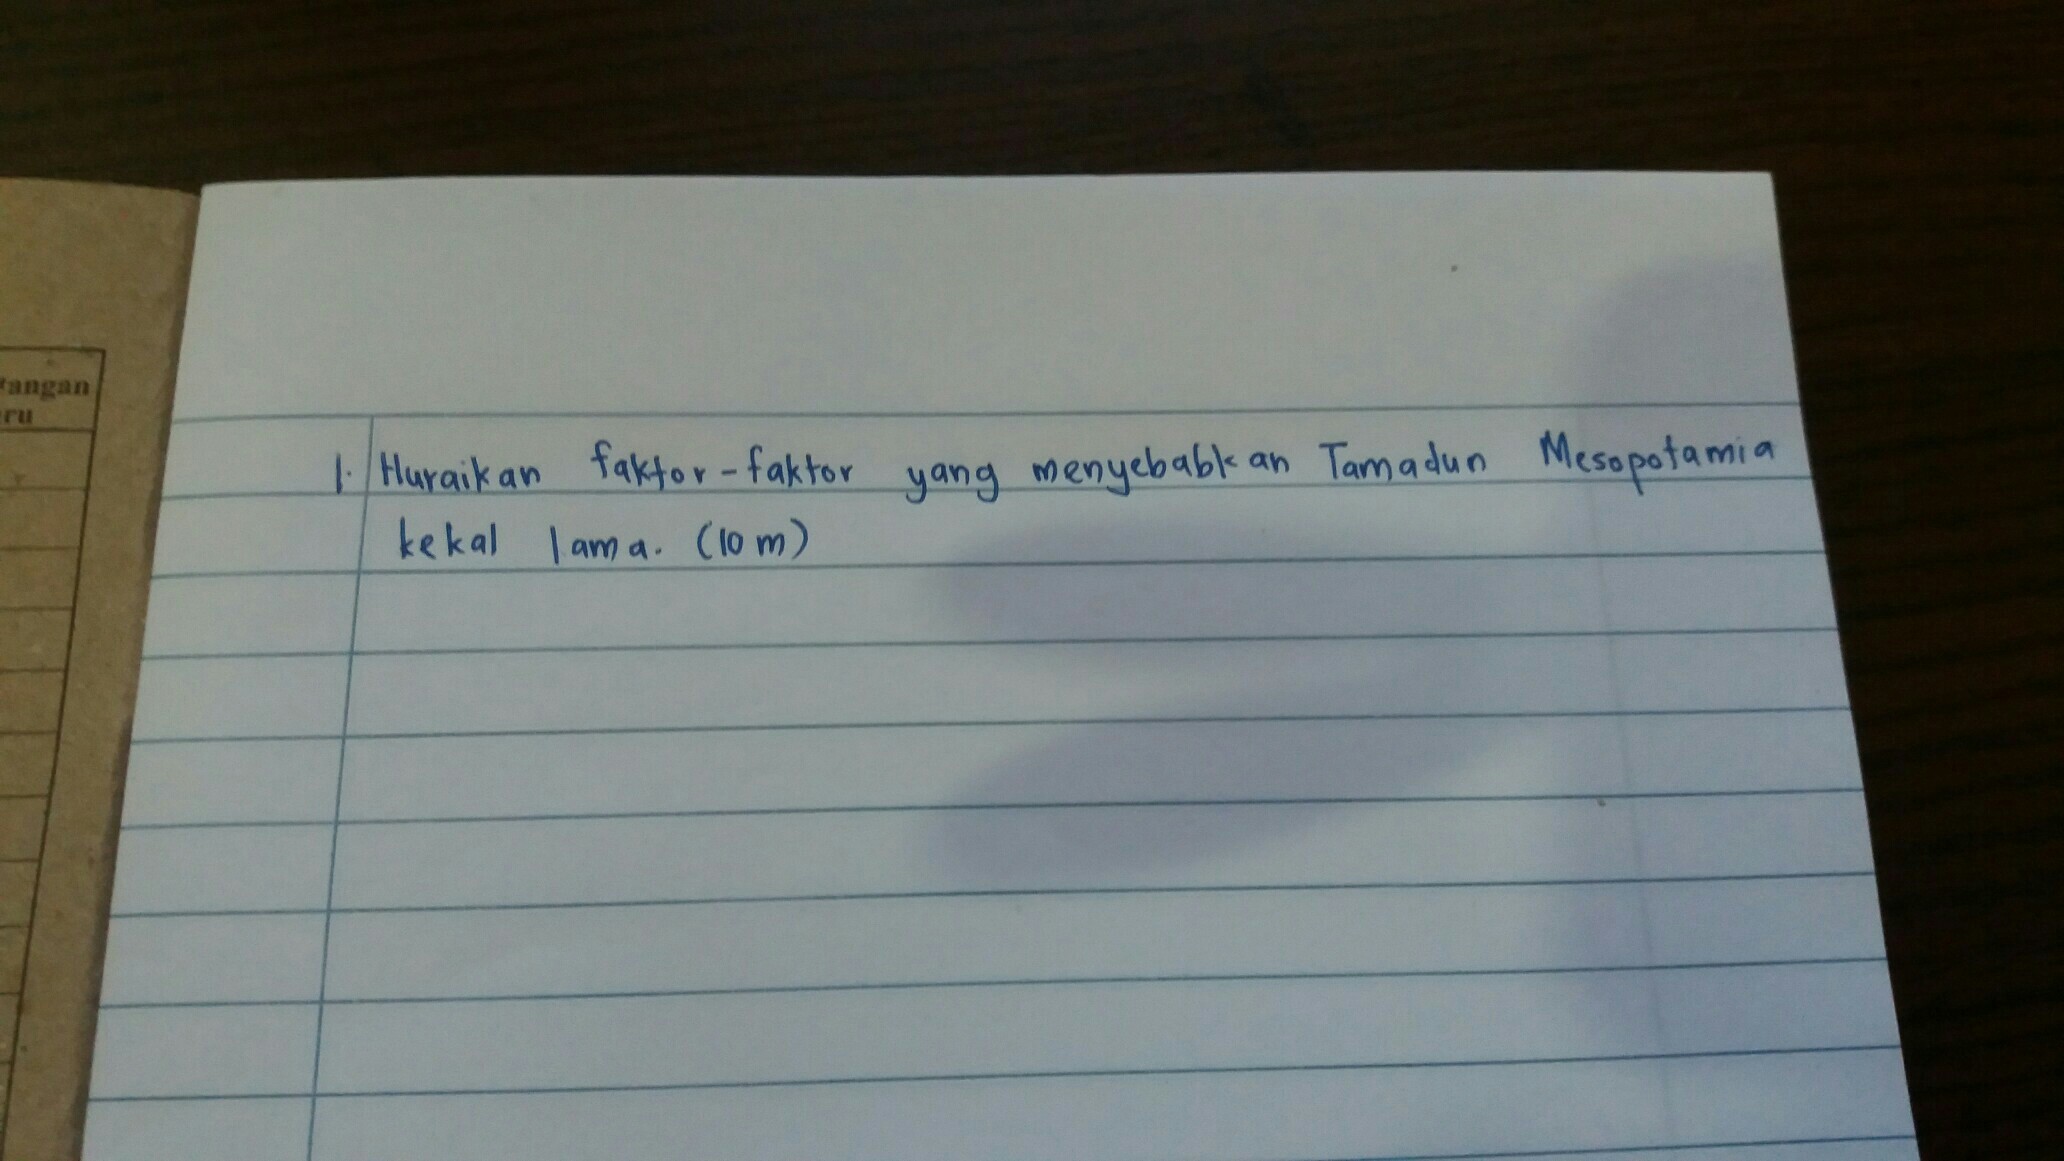 tangan
ru
1. Huraikan faktor-faktor yang menyebabkan Tamadun Mesopotamia
kekal lama. (10 m)